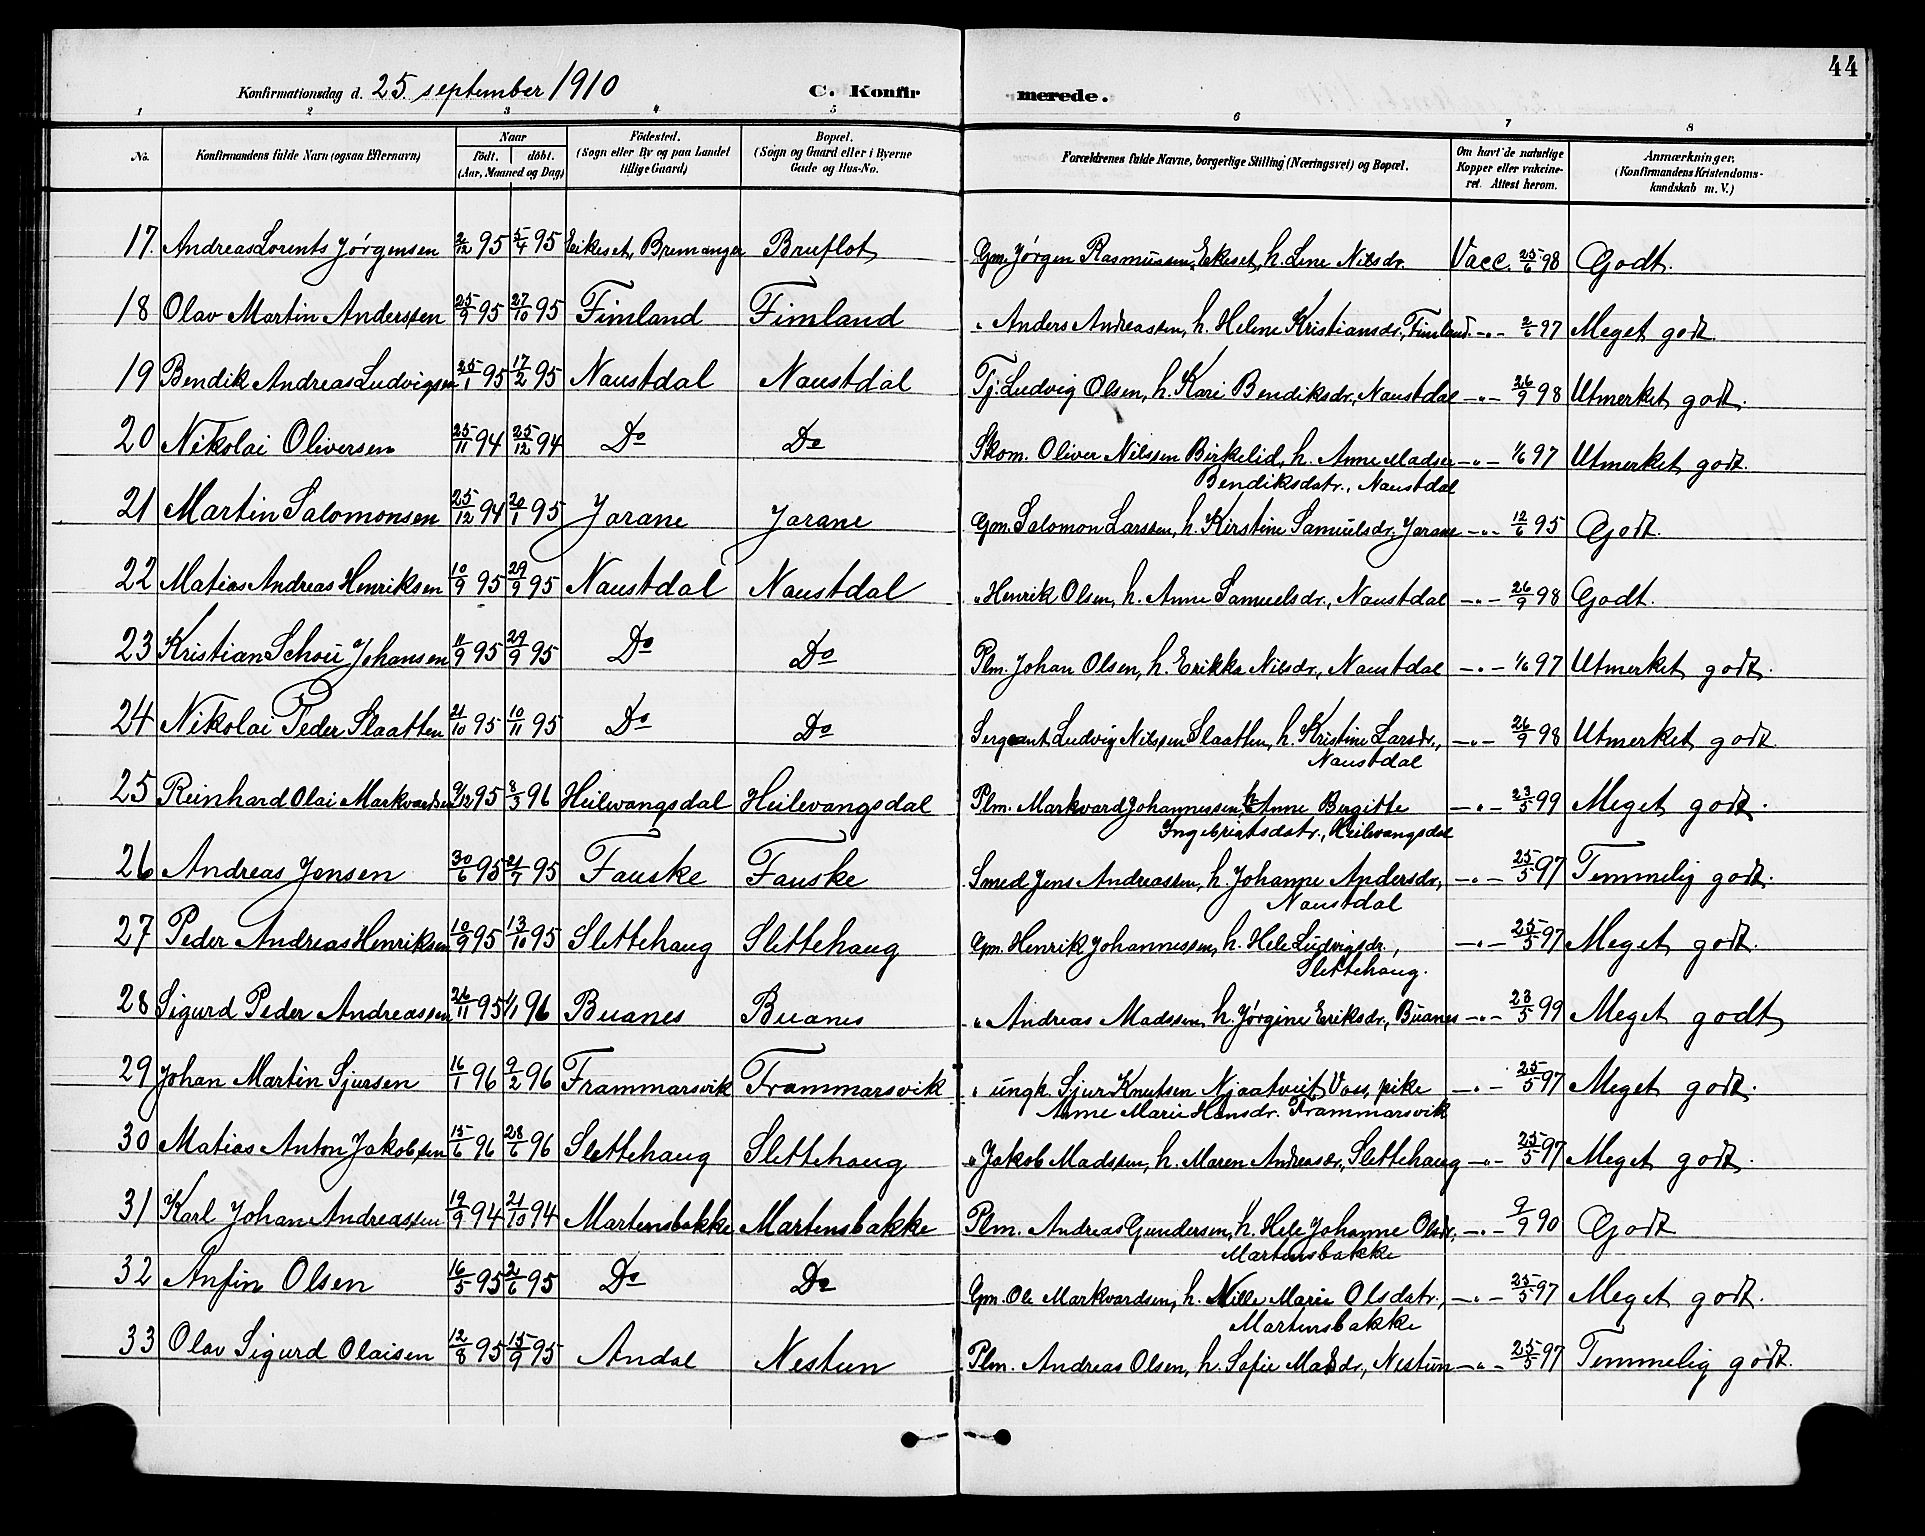 44
Konfirmationsdag d. 25 september 1910 C. Konfirmerede.
1 2 3 4 5 6 7 8
No. Konfirmandens fulde Navn (ogsaa Efternavn) Naar födt. döbt. (Aar, Maaned og Dag) Födested. (Sogn eller By og paa Landet tillige Gaard) Bopæl. (Sogn og Gaard eller i Byerne Gade og Hus-No. Forældrenes fulde Navne, borgerlige Stilling (Næringsvei) og Bopæl. Om havt de naturlige Kopper eller vakcineret. Attest herom. Anmærkninger. (Konfirmandens Kristendomskundskab m. V.)
17. Andreas Lorents Jørgensen 2/12 95 5/4 95 Eikeset, Bremanger Bruflot Gm. Jørgen Rasmussen, Eikeset, h. Lene Nilsdr. Vacc. 25/6 98 Godt.
18 Olav Martin Anderssen 25/9 95 27/10 95 Fimland Fimland " Anders Andreassen, h. Helene Kristiansdr., Fimland. -"- 2/6 97 Meget godt.
19 Bendik Andreas Ludvigsen 25/1 95 17/2 95 Naustdal Naustdal Tj. Ludvig Olsen, h. Kari Bendiksdr., Naustdal -"- 26/9 98 Utmerket godt.
20 Nikolai Oliversen 25/11 94 25/12 94 Do Do Skom. Oliver Nilssen Birkelid, h. Anne Madsea -"- 1/6 97 Utmerket godt.
Bendiksdatr., Naustdal
21 Martin Salomonsen 25/12 94 20/1 95 Jarane Jarane Gm. Salomon Larssen, h. Kirstine Samuelsdr. Jarane -"- 12/6 95 Godt.
22 Matias Andreas Henriksen 10/9 95 29/9 95 Naustdal Naustdal " Henrik Olsen, h. Anne Samuelsdr., Naustdal -"- 26/9 98 Godt.
23 Kristian Schou Johansen 11/9 95 29/9 95 Do Do Plm. Johan Olsen, h. Erikka Nilsdr., Naustdal -"- 1/6 97 Utmerket godt.
24 Nikolai Peder Slaatten 21/10 95 10/11 95 Do Do Sergeant Ludvig Nilssen Slaatten, h. Kristine Larsdr., -"- 26/9 98 Utmerket godt.
Naustdal
25 Reinhard Olai Markvardsen 9/12 95 8/3 96 Heilevangsdal Heilevangsdal Plm. Markvard Johannessen, h. Anne Birgitte -"- 23/5 99 Meget godt.
Ingebrigtsdatr., Heilevangsdal
26 Andreas Jensen 30/6 95 21/7 95 Fauske Fauske Smed Jens Andreassen, h. Johanne Andersdr., -"- 25/5 97 Temmelig godt.
Naustdal
27 Peder Andreas Henriksen 10/9 95 13/10 95 Slettehaug Slettehaug Gm. Henrik Johannessen, h. Hele Ludvigsdr., -"- 25/5 97 Meget godt.
Slettehaug.
28 Sigurd Peder Andreassen 26/11 95 1/1 96 Buanes Buanes " Andreas Madssen, h. Jørgine Eriksdr., Buanes -"- 23/5 99 Meget godt
29 Johan Martin Sjursen 16/1 96 9/2 96 Frammarsvik Frammarsvik " ungk. Sjur Knutsen Njaatveit Voss, pike -"- 25/5 97 Meget godt.
Anne Marie Hansdr. Frammarsvik
30 Matias Anton Jakobsen 15/6 96 28/6 96 Slettehaug Slettehaug " Jakob Madssen, h. Maren Andreasdr., Slettehaug -"- 25/5 97 Meget godt.
31 Karl Johan Andreassen 19/9 94 21/10 94 Martensbakke Martensbakke Plm. Andreas Gundersen, h. Hele Johanne Olsdr., -"- 9/9 90 Godt
Martensbakke
32 Anfin Olsen 16/5 95 2/6 95 Do Do Gm. Ole Markvardsen, h. Nille Marie Olsdatr., -"- 25/5 97 Meget godt.
Martensbakke
33 Olav Sigurd Olaisen 12/8 95 15/9 95 Andal Nestun Plm. Andreas Olsen, h. Sofie Masdr., Nestun -"- 25/5 97 Temmelig godt.